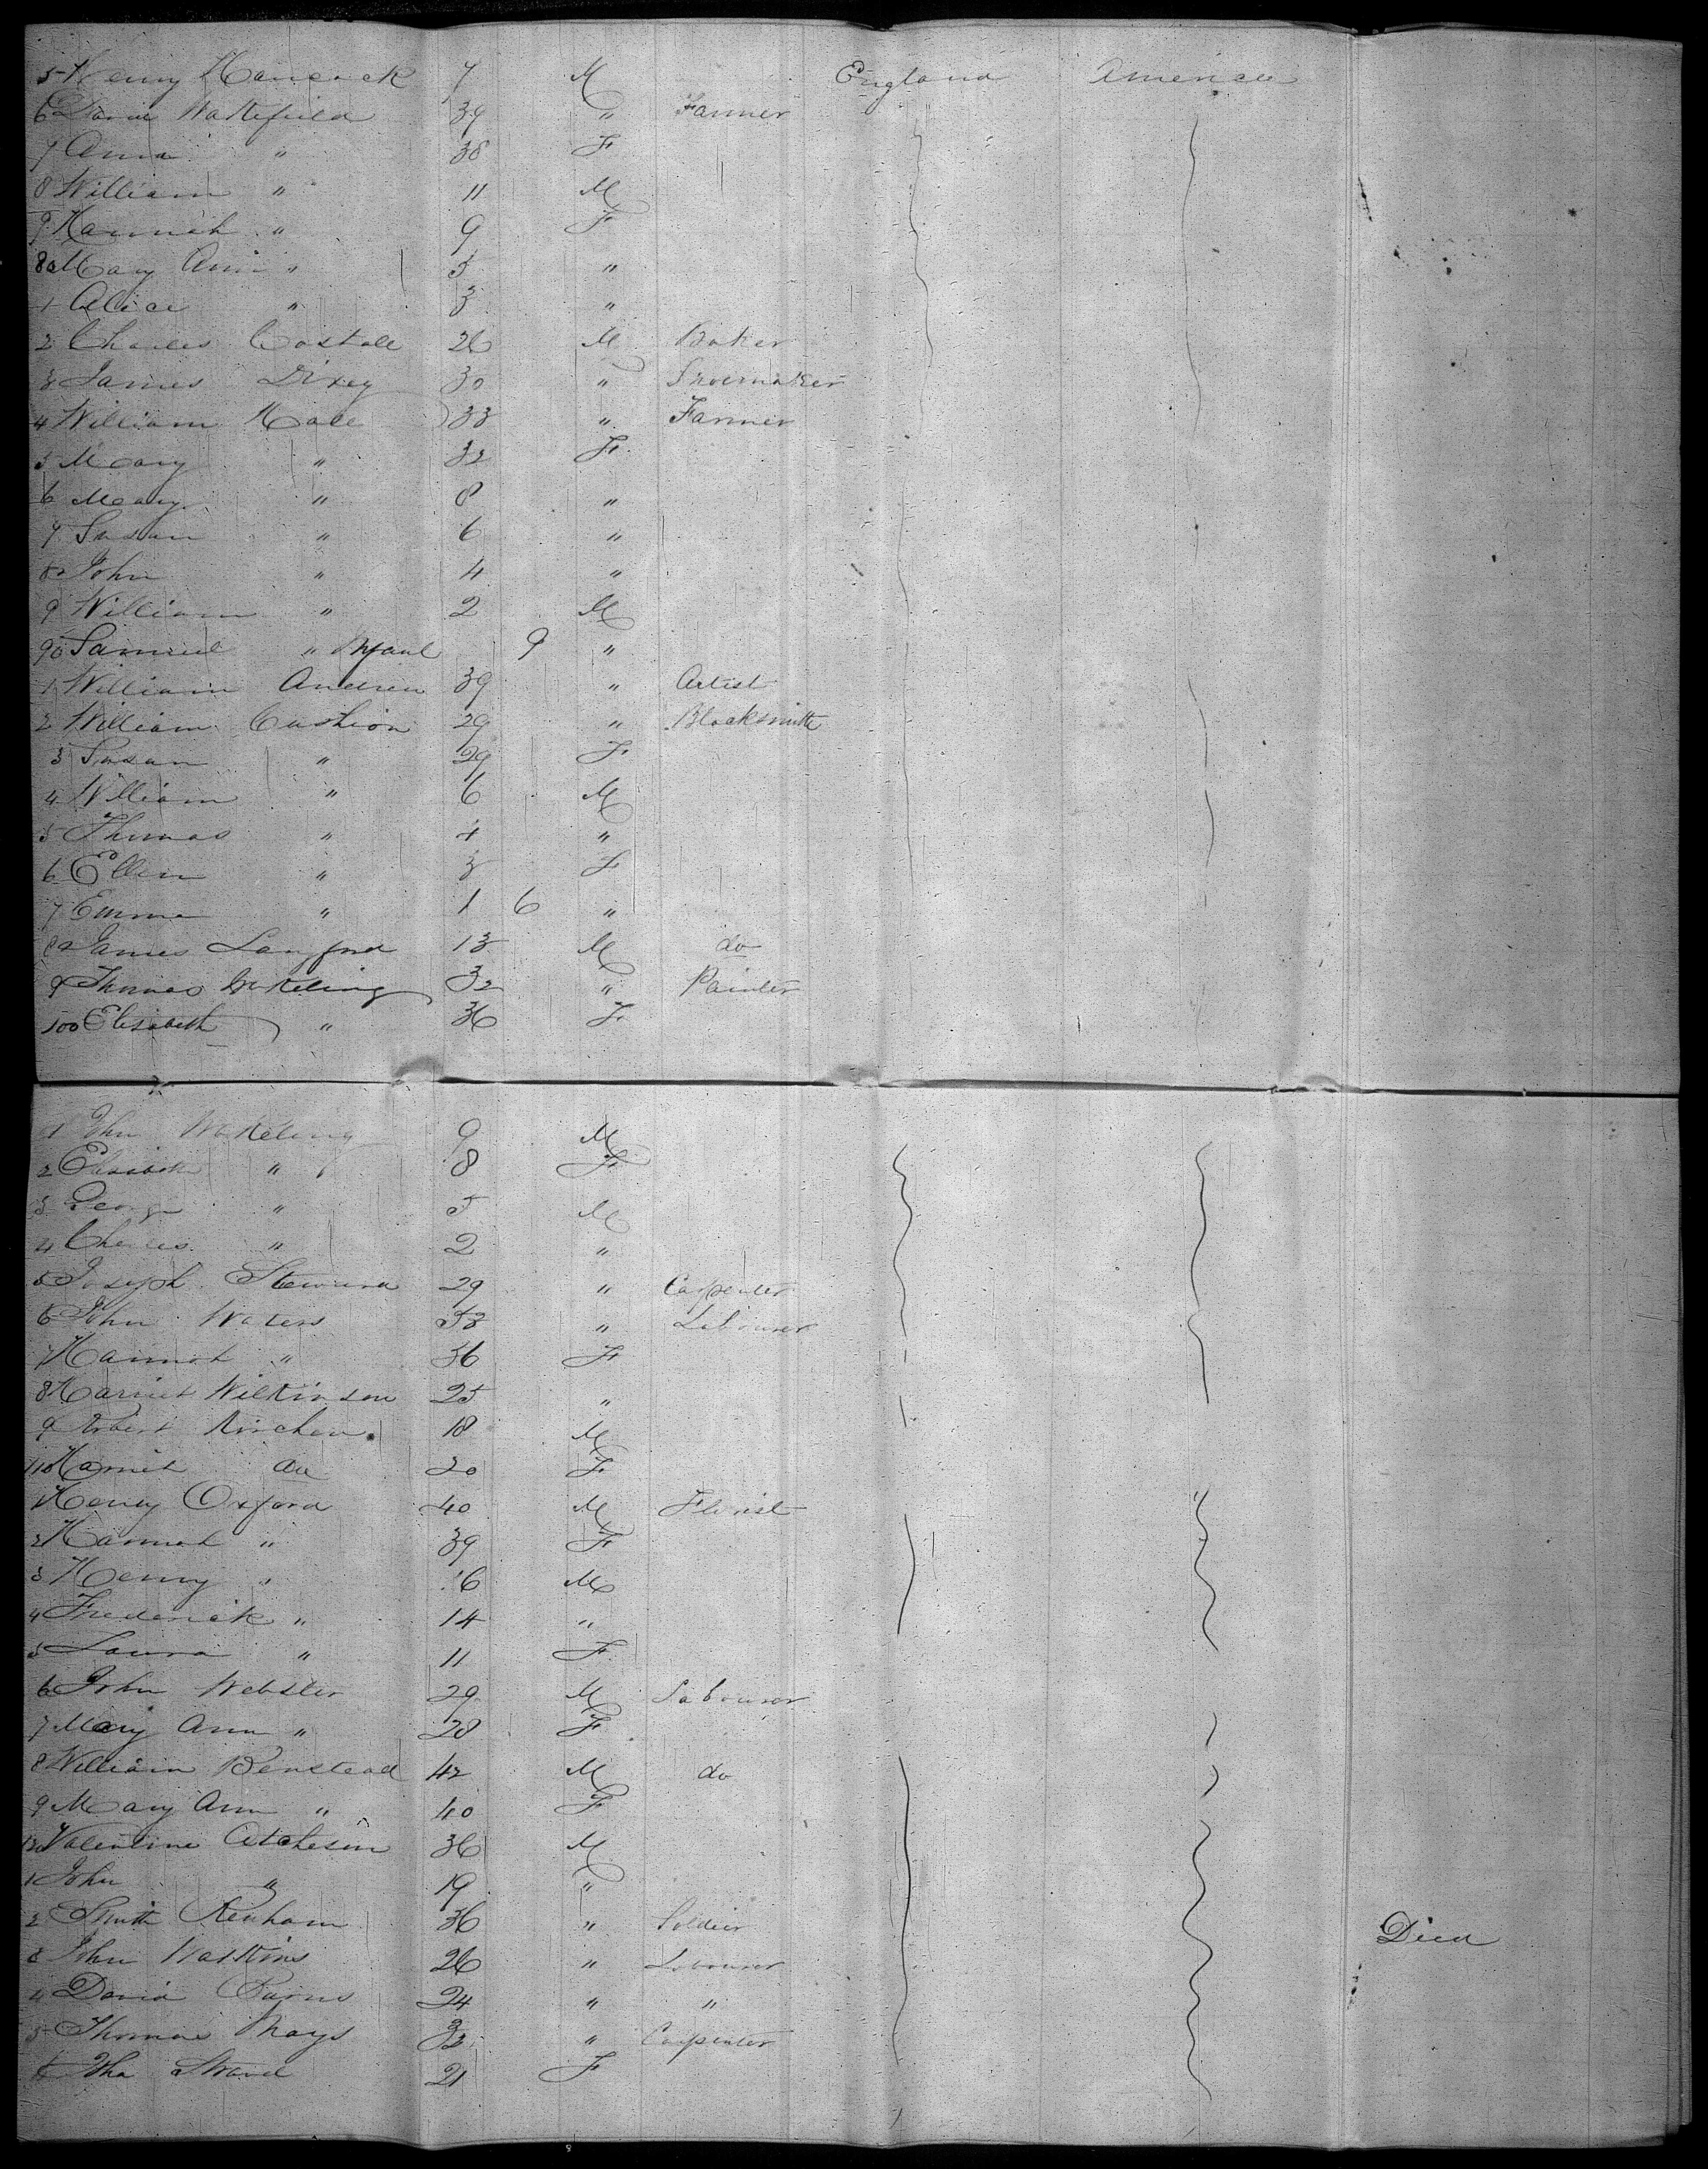 5 Henry Hancock 7 M England America
6 David Wakefield 39 " Farmer
7 Anna " 38 F
8 William " 11 M
9 Hannah " 9 F
80 Mary Ann " 5 "
1 Alice " 3 "
2 Charles Costall 26 M Baker
3 James Dixey 30 " Shoemaker
4 William Hall 33 " Farmer
5 Mary " 32 F
6 Mary " 8 "
7 Susan " 6 "
8 John " 4 "
9 William " 2 M
90 Samuel " Infant 9 "
1 William Andrew 39 " Artist
2 William Cushion 29 " Blacksmith
3 Susan " 29 F
4 William " 6 M
5 Thomas " 4 "
6 Ellen " 3 F
7 Emma " 1 6 "
8 James Langford 13 M do
9 Thomas Wakeling 32 " Painter
100 Elizabeth " 36 F
1 John Wakeling 9 M
2 Elizabeth " 8 F
3 George " 5 M
4 Charles " 2 "
5 Joseph Steward 29 " Carpenter
6 John Waters 53 " Labourer
7 Hannah " 36 F
8 Harriet Wilkinson 25 "
9 Robert 18 M
110 Harriet do 20 F
1 Henry Oxford 40 M Florist
2 Hannah " 39 F
3 Henry " 16 M
4 Frederick " 14 "
5 Laura " 11 F
6 John Webster 29 M Labourer
7 Mary Ann " 28 F
8 William Benstead 42 M do
9 Mary Ann " 40 F
120 Valentine Atcheson 36 M
1 John " 19 "
2 Smith Renham 36 " Soldier Died
3 John Watkins 26 " Labourer
4 David 24 " "
5 Thomas Mays 32 " Carpenter
6 21 F